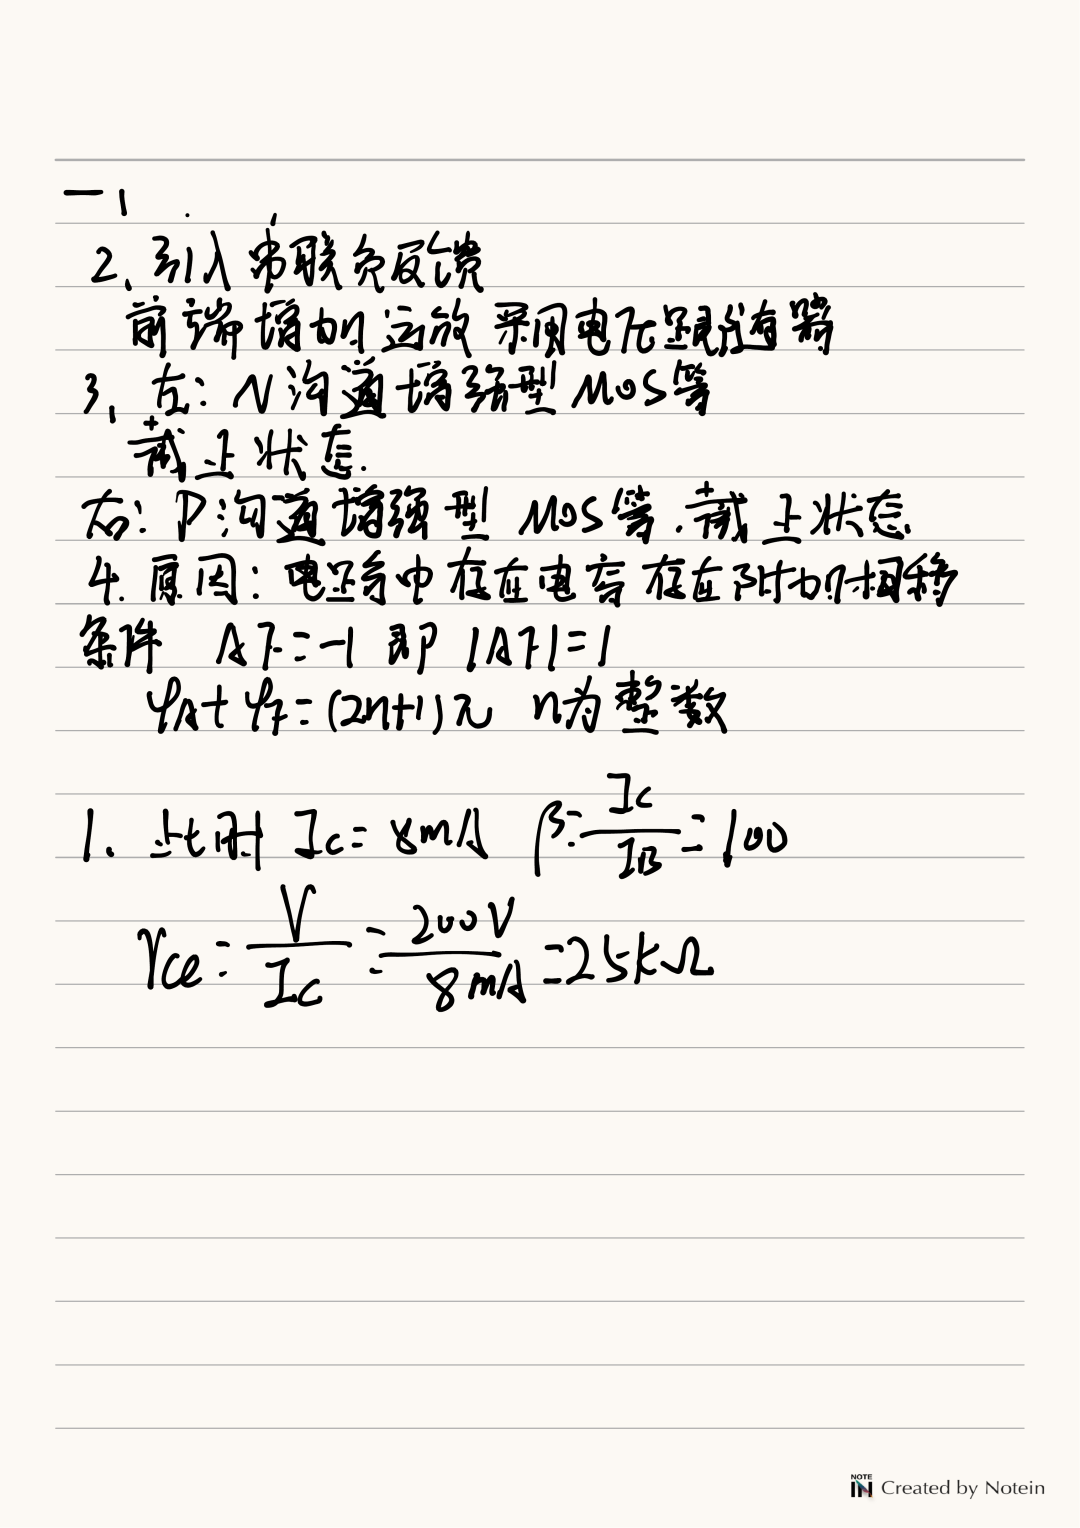 一、
2、引入串联负反馈
前端增加运放 采用电压跟随器
3、左：N沟道增强型 MOS管
截止状态.
右：P沟道增强型 MOS管.截止状态
4.原因：电路中存在电容 存在附加相移
条件 AF=-1 即 |AF|=1
φA+φF=(2n+1)π n为整数
1. 此时 Ic=8mA β=Ic/IB=100
rce=V/Ic=200V/8mA=25kΩ
NOTE IN Created by Notein